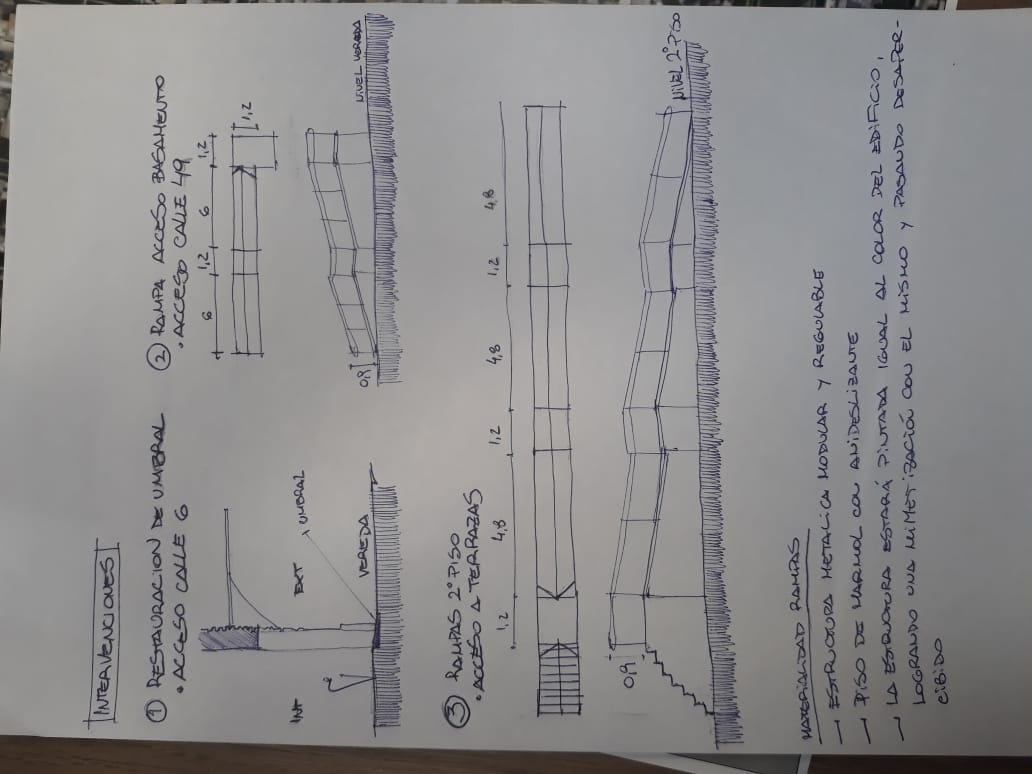 INTERVENCIONES
① RESTAURACION DE UMBRAL
• ACCESO CALLE 6
INT
EXT
UMBRAL
VEREDA
② RAMPA ACCESO BASAMENTO
• ACCESO CALLE 49
6
1,2
6
1,2
1,2
0,9
NIVEL VEREDA
③ RAMPAS 2° PISO
• ACCESO A TERRAZAS
1,2
4,8
1,2
4,8
1,2
4,8
0,9
NIVEL 2° PISO
MATERIALIDAD RAMPAS
→ ESTRUCTURA METALICA MODULAR Y REGULABLE
→ PISO DE MARMOL CON ANIDESLIZANTE
→ LA ESTRUCTURA ESTARÁ PINTADA IGUAL AL COLOR DEL EDIFICIO,
LOGRANDO UNA MIMETIZACIÓN CON EL MISMO Y PASANDO DESAPER-
CIBIDO